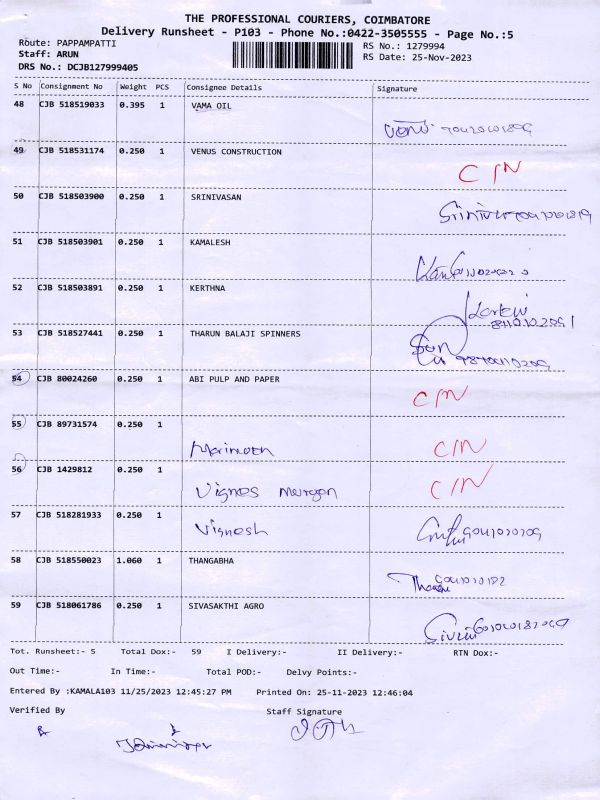 THE PROFESSIONAL COURIERS, COIMBATORE
Delivery Runsheet - P103 - Phone No.:0422-3505555 - Page No.:5
Route: PAPPAMPATTI
RS No.: 1279994
Staff: ARUN
RS Date: 25-Nov-2023
DRS No.: DCJB127999405
S No Consignment No Weight PCS Consignee Details Signature
48 CJB 518519033 0.395 1 VAMA OIL
49 CJB 518531174 0.250 1 VENUS CONSTRUCTION C/N
50 CJB 518503900 0.250 1 SRINIVASAN
51 CJB 518503901 0.250 1 KAMALESH
52 CJB 518503891 0.250 1 KERTHNA
53 CJB 518527441 0.250 1 THARUN BALAJI SPINNERS
54 CJB 80024260 0.250 1 ABI PULP AND PAPER C/N
55 CJB 89731574 0.250 1 C/N
56 CJB 1429812 0.250 1 Vignes C/N
57 CJB 518281933 0.250 1 Vignesh
58 CJB 518550023 1.060 1 THANGABHA
59 CJB 518061786 0.250 1 SIVASAKTHI AGRO
Tot. Runsheet:- 5 Total Dox:- 59 I Delivery:- II Delivery:- RTN Dox:-
Out Time:- In Time:- Total POD:- Delvy Points:-
Entered By :KAMALA103 11/25/2023 12:45:27 PM Printed On: 25-11-2023 12:46:04
Verified By Staff Signature